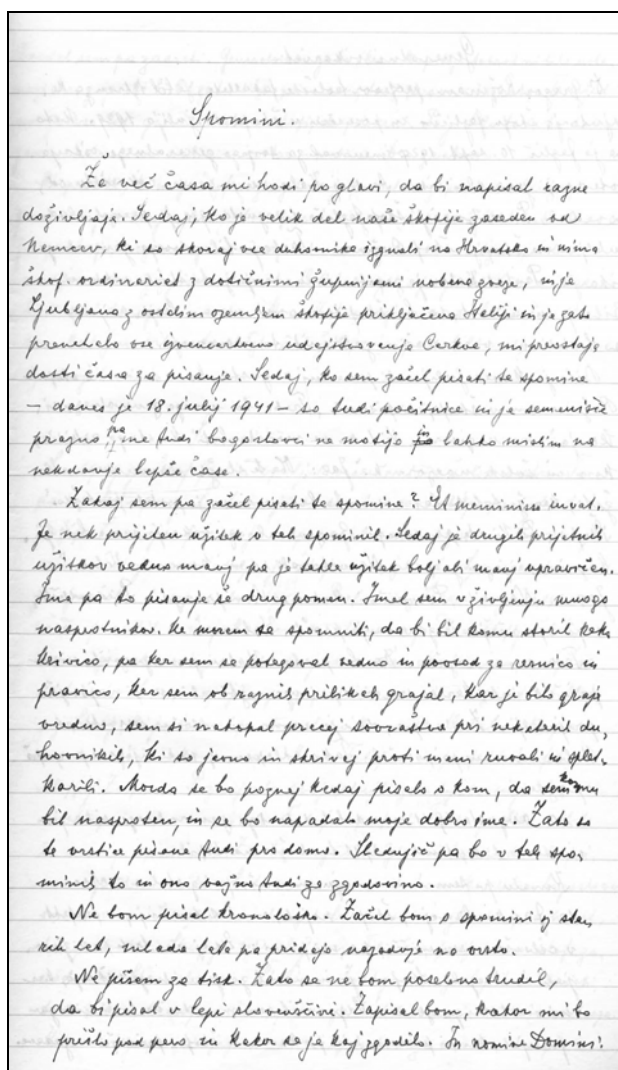 Spomini.
Že več časa mi hodi po glavi, da bi napisal razne
doživljaje. Sedaj, ko je velik del naše škofije zaseden od
Nemcev, ki so skoraj vse duhovnike izgnali na Hrvatsko in nima
škof. ordinariat z dotičnimi župnijami nobene zveze, in je
Ljubljana z ostalim ozemljem škofije priključena Italiji in je zato
prenehalo vse izvencerkveno udejstvovanje Cerkve, mi preostaja
dosti časa za pisanje. Sedaj, ko sem začel pisati te spomine
– danes je 18. julij 1941 – so tudi počitnice in je semenišče
prazno, pa me tudi bogoslovci ne motijo in lahko mislim na
nekdanje lepše čase.
Zakaj sem pa začel pisati te spomine? Et meminisse iuvat.
Je nek prijeten užitek v teh spominih. Sedaj je drugih prijetnih
užitkov vedno manj pa je tale užitek bolj ali manj upravičen.
Ima pa to pisanje še drug pomen. Imel sem v življenju mnogo
nasprotnikov. Ne morem se spomniti, da bi bil komu storil kako
krivico, pa ker sem se potegoval vedno in povsod za resnico in
pravico, ker sem ob raznih prilikah grajal, kar je bilo graje
vredno, sem si nakopal precej sovraštva pri nekaterih du,
hovnikih, ki so javno in skrivej proti meni ruvali in splet,
karili. Morda se bo pozneje kedaj pisalo o kom, da sem mu
bil nasproten, in se bo napadalo moje dobro ime. Zato so
te vrstice pisane tudi pro domo. Slednjič pa bo v teh spo,
minih to in ono važno tudi za zgodovino.
Ne bom pisal kronološko. Začel bom s spomini iz sta
rih let, mlada leta pa pridejo nazadnje na vrsto.
Ne pišem za tisk. Zato se ne bom posebno trudil,
da bi pisal v lepi slovenščini. Zapisal bom, kakor mi bo
prišlo pod pero, in kakor se je kaj zgodilo. In nomine Domini!